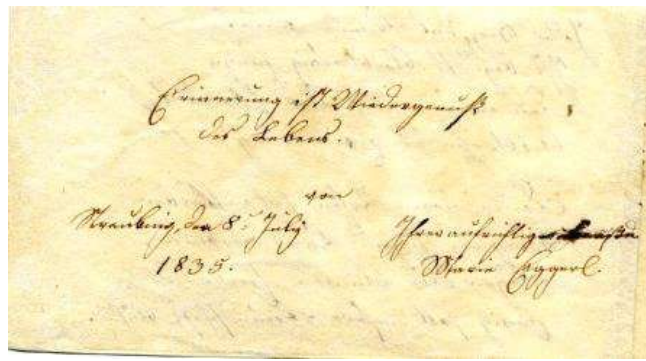 Erinnerung ist Wiedergenuß
des Lebens.
von
Straubing, den 8. July
1835.
Ihrer aufrichtig
Marie Eggerl.